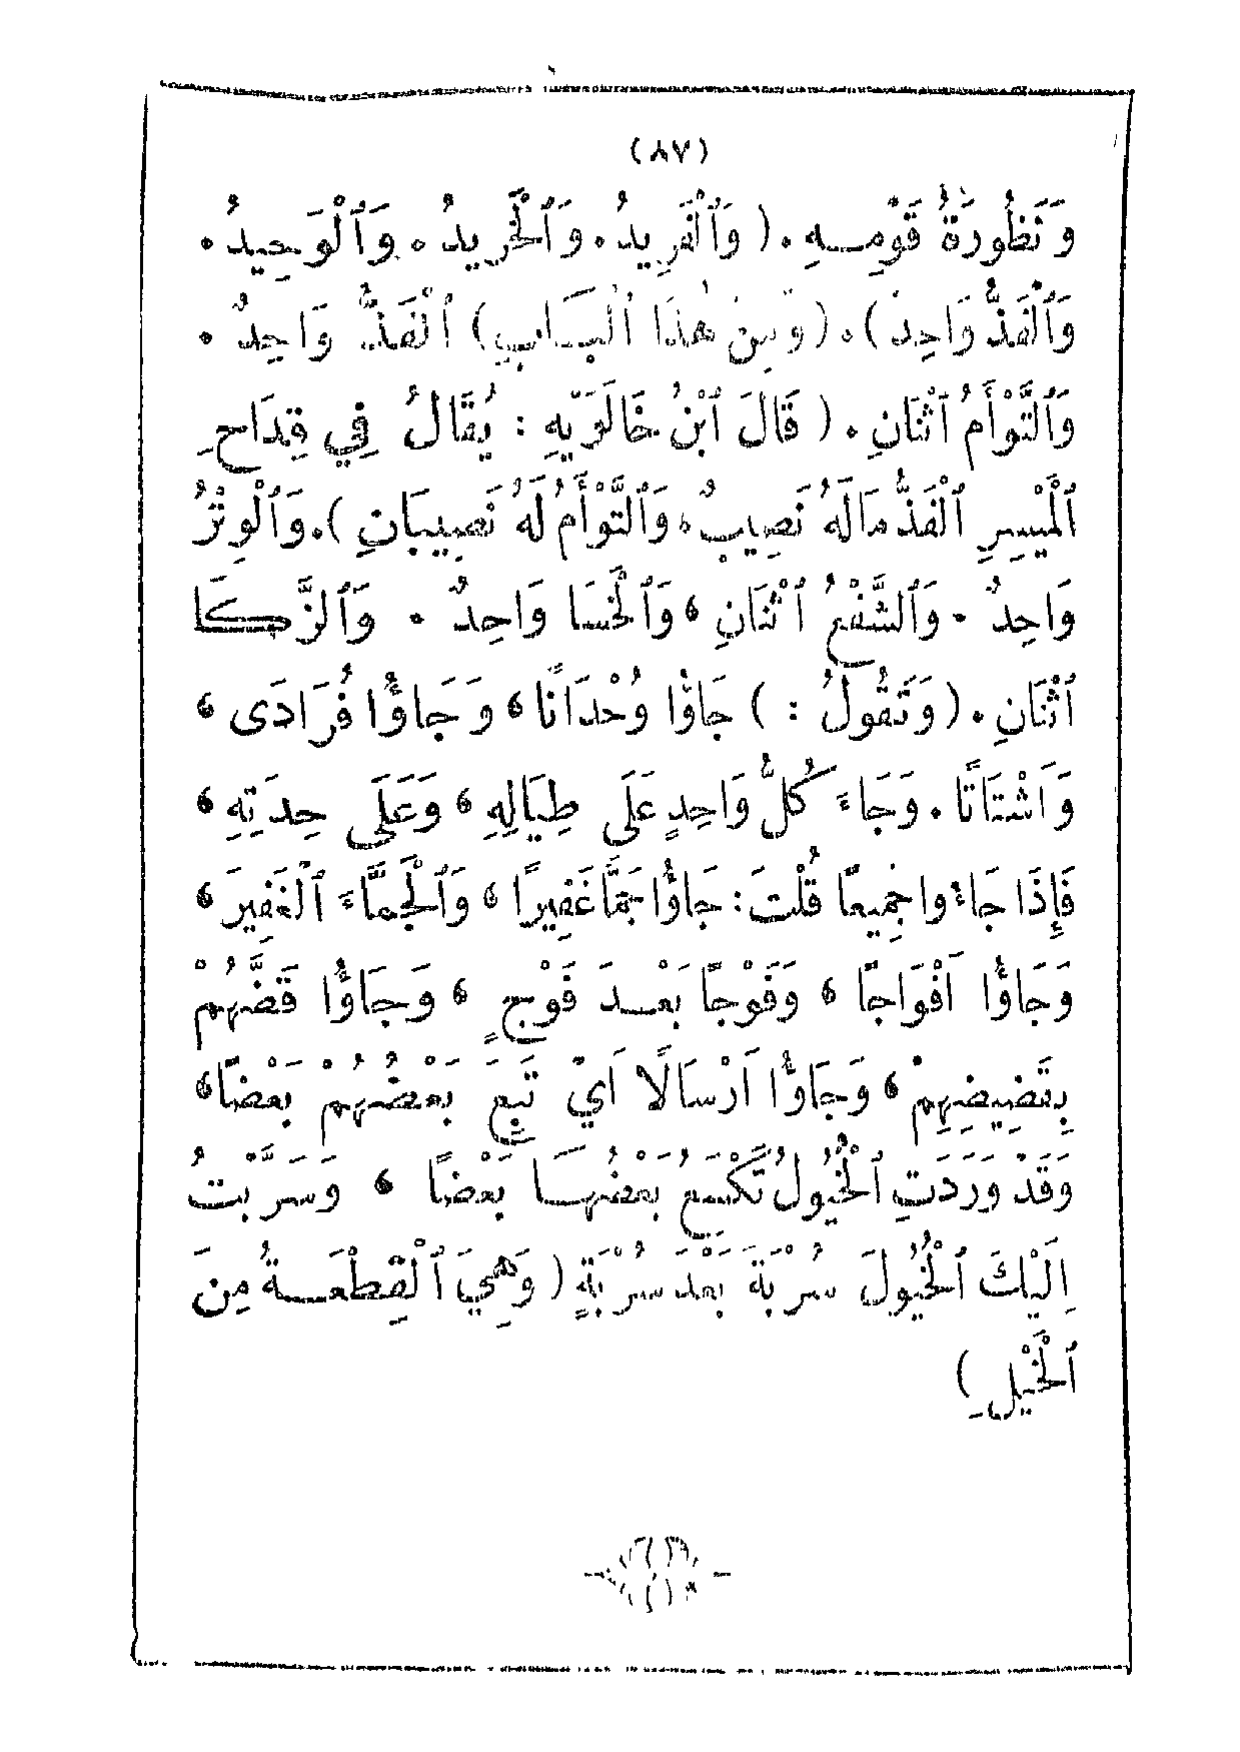 (٨٧)
وَنَظُورَةُ قَوْمِهِ . ( وَٱلْفَرِيدُ . وَٱلْخَرِيدُ . وَٱلْوَحِيدُ .
وَٱلْفَذُّ وَاحِدٌ ) . ( وَمِنْ هٰذَا ٱلْبَابِ ) ٱلْفَذُّ وَاحِدٌ .
وَٱلتَّوْأَمُ ٱثْنَانِ . ( قَالَ ٱبْنُ خَالَوَيْهِ : يُقَالُ فِي قِدَاحِ
ٱلْمَيْسِرِ ٱلْفَذُّ مَا لَهُ نَصِيبٌ ، وَٱلتَّوْأَمُ لَهُ نَصِيبَانِ ) . وَٱلْوِتْرُ
وَاحِدٌ . وَٱلشَّفْعُ ٱثْنَانِ ، وَٱلْخَسَا وَاحِدٌ . وَٱلزَّكَا
ٱثْنَانِ . ( وَتَقُولُ : ) جَاؤُا وُحْدَانًا ، وَجَاؤُا فُرَادَى ،
وَاَشْتَاتًا . وَجَاءَ كُلُّ وَاحِدٍ عَلَى طِيَالِهِ ، وَعَلَى حِدَتِهِ ،
فَإِذَا جَاءُوا جَمِيعًا قُلْتَ : جَاؤُا جَمًّا غَفِيرًا ، وَٱلْجَمَّاءَ ٱلْغَفِيرَ ،
وَجَاؤُا اَفْوَاجًا ، وَفَوْجًا بَعْدَ فَوْجٍ ، وَجَاؤُا قَضُّهُمْ
بِقَضِيضِهِمْ ، وَجَاؤُا اَرْسَالًا اَيْ تَبِعَ بَعْضُهُمْ بَعْضًا ،
وَقَدْ وَرَدَتِ ٱلْخُيُولُ تَكْسَعُ بَعْضُهَا بَعْضًا ، وَسَرَّبْتُ
اِلَيْكَ ٱلْخُيُولَ سُرْبَةً بَعْدَ سُرْبَةٍ ( وَهِيَ ٱلْقِطْعَةُ مِنَ
ٱلْخَيْلِ )